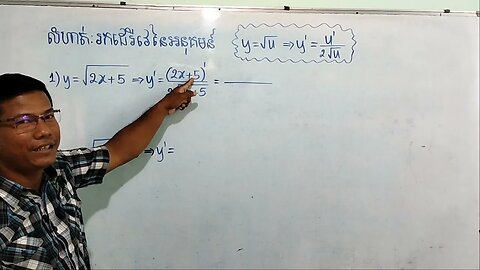 លំហាត់: រកដេរីវេនៃអនុគមន៍
y=√u ⇒ y' = u'/2√u
1) y = √2x+5 ⇒ y' = (2x+5)'/ +5 =
⇒ y' =